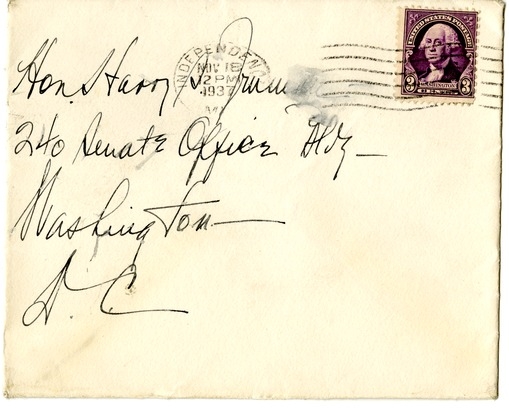 UNITED STATES POSTAGE
WASHINGTON
3 3
INDEPENDEN
NOV 18
12 PM
1937
MO
Hon. Harry S. Truman
240 Senate Office Bldg
Washington
D. C.